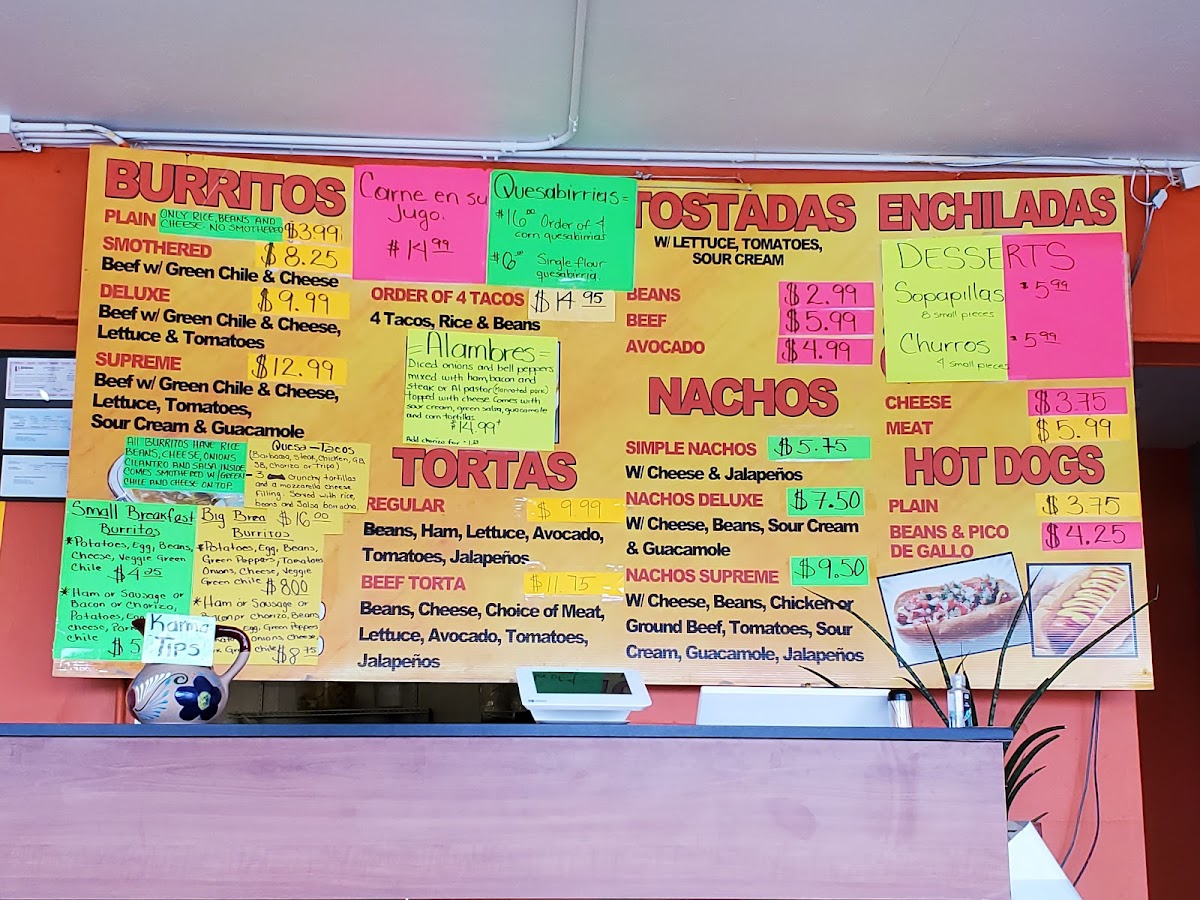 BURRITOS
PLAIN
ONLY RICE, BEANS AND
CHEESE- NO SMOTHERED
$3.99
SMOTHERED
$8.25
Beef w/ Green Chile & Cheese
DELUXE
$9.99
Beef w/ Green Chile & Cheese,
Lettuce & Tomatoes
SUPREME
$12.99
Beef w/ Green Chile & Cheese,
Lettuce, Tomatoes,
Sour Cream & Guacamole
All BURRITOS HAVE RICE
BEANS, CHEESE, ONIONS,
CILANTRO AND SALSA INSIDE
COMES SMOTHERED W/GREEN
CHILE AND CHEESE ON TOP.
Quesa-Tacos
(Barbacoa, Steak, Chicken, GB,
SB, Chorizo or Tripa)
- 3 crunchy tortillas
and a mozzarella cheese
filling. Served with rice,
beans and salsa borracha.
$16.00
Small Breakfast
Burritos
*Potatoes, Egg, Beans,
Cheese, Veggie Green
Chile $4.25
*Ham or Sausage or
Bacon or Chorizo,
Potatoes,
cheese,
chile $5
Big Brea
Burritos
*Potatoes, Egg, Beans,
Green Peppers, Tomatoes
Onions, Cheese, Veggie
Green chile $8.00
*Ham or Sausage or
Chorizo, Beans
Egg, Green Peppers
Onions, Cheese,
chile $8.75
Karma
Tips
Carne en su
Jugo.
$14.99
Quesabirrias=
$16.00 Order of 4
corn quesabirrias
$6.00 Single flour
quesabirria.
ORDER OF 4 TACOS
$14.95
4 Tacos, Rice & Beans
=Alambres=
Diced onions and bell peppers
mixed with ham, bacon and
steak or Al pastor (Marinated pork)
topped with cheese. Comes with
sour cream, green salsa, guacamole
and corn tortillas.
$14.99+
Add chorizo for
TORTAS
REGULAR
$9.99
Beans, Ham, Lettuce, Avocado,
Tomatoes, Jalapeños
BEEF TORTA
$11.75
Beans, Cheese, Choice of Meat,
Lettuce, Avocado, Tomatoes,
Jalapeños
TOSTADAS
W/ LETTUCE, TOMATOES,
SOUR CREAM
BEANS $2.99
BEEF $5.99
AVOCADO $4.99
NACHOS
SIMPLE NACHOS $5.75
W/ Cheese & Jalapeños
NACHOS DELUXE $7.50
W/ Cheese, Beans, Sour Cream
& Guacamole
NACHOS SUPREME $9.50
W/ Cheese, Beans, Chicken or
Ground Beef, Tomatoes, Sour
Cream, Guacamole, Jalapeños
ENCHILADAS
DESSERTS
Sopapillas $5.99
8 small pieces
Churros $5.99
4 small pieces
CHEESE $3.75
MEAT $5.99
HOT DOGS
PLAIN $3.75
BEANS & PICO
DE GALLO
$4.25